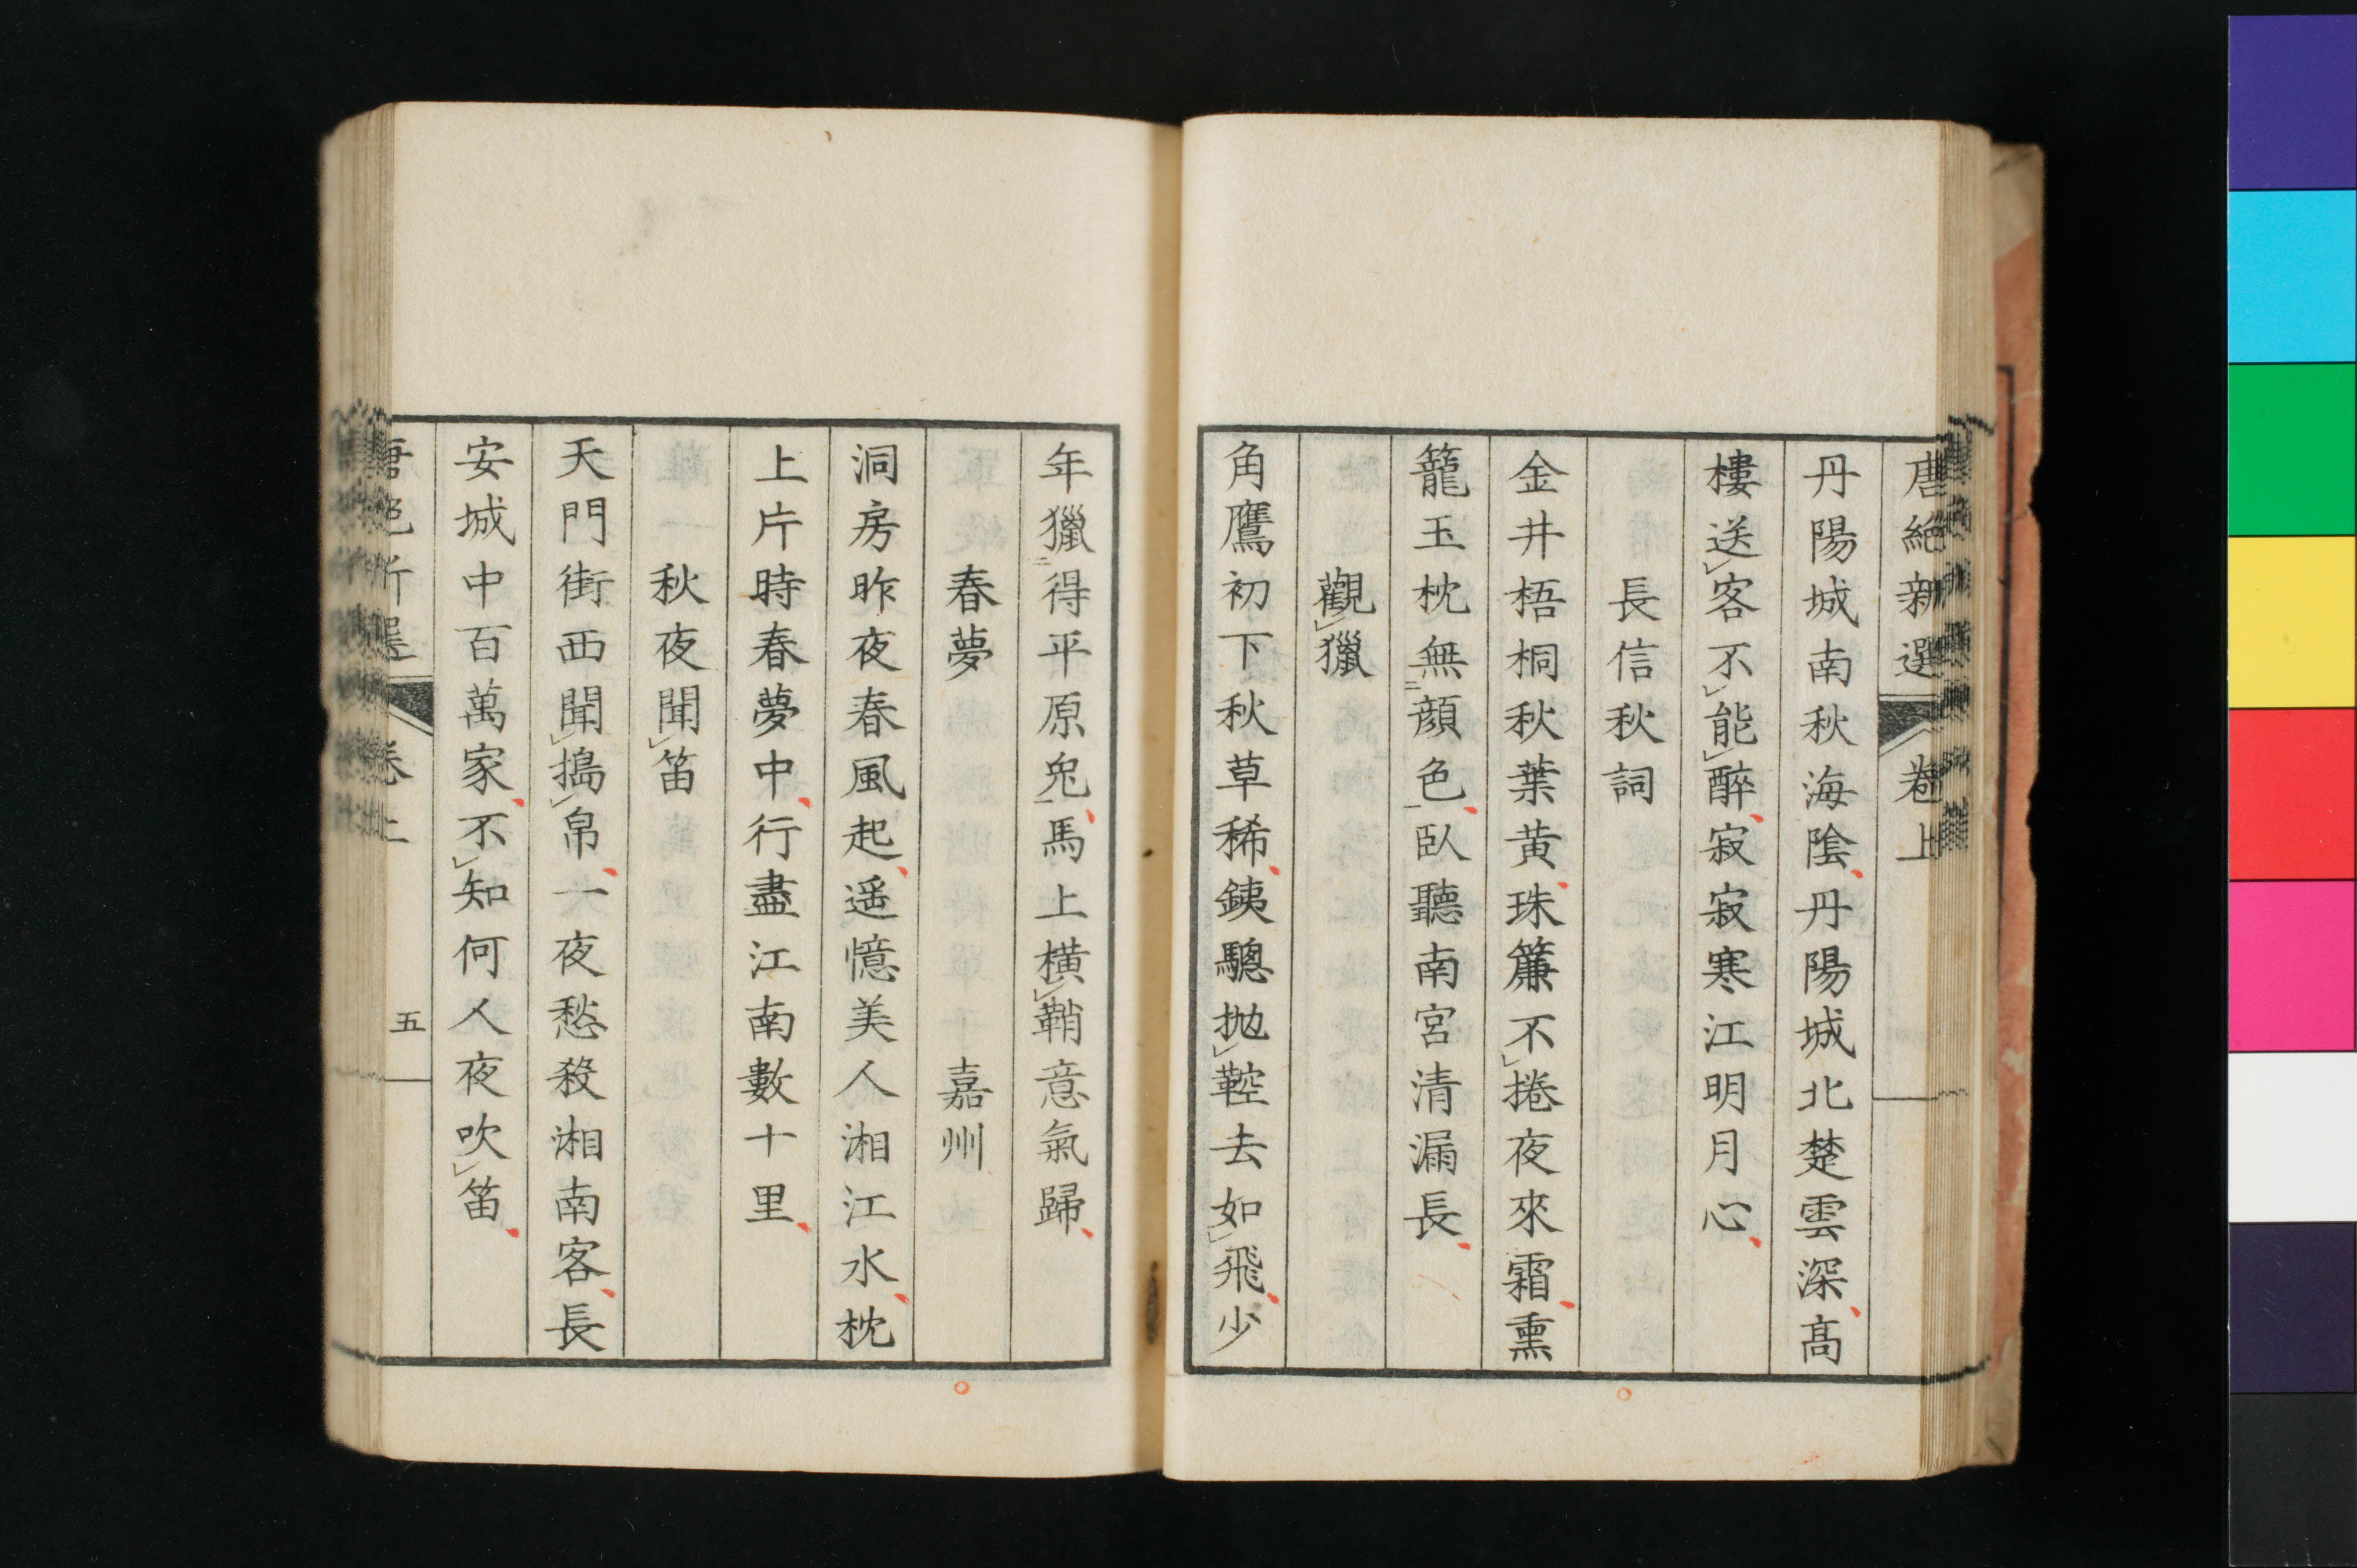 唐絶新選 卷上
丹陽城南秋海陰丹陽城北楚雲深高
樓送客不能醉寂寂寒江明月心
長信秋詞
金井梧桐秋葉黄珠簾不捲夜來霜熏
籠玉枕無顔色臥聽南宮清漏長
觀獵
角鷹初下秋草稀鐵驄抛鞚去如飛少
年獵得平原兔馬上横鞘意氣歸
春夢 嘉州
洞房昨夜春風起遥憶美人湘江水枕
上片時春夢中行盡江南數十里
秋夜聞笛
天門街西聞搗帛一夜愁殺湘南客長
安城中百萬家不知何人夜吹笛
唐絶新選 卷上 五